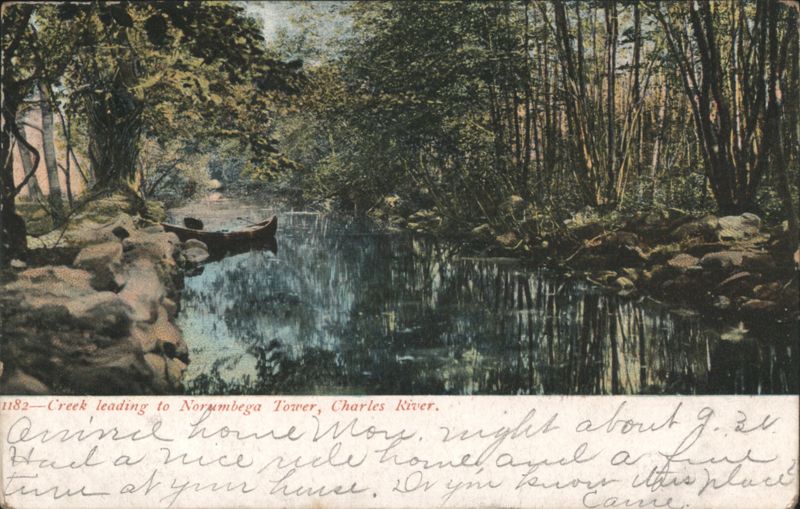 1182—Creek leading to Norumbega Tower, Charles River.
Arrived home Mon. night about 9.30.
Had a nice ride home and a fine
time at your house. Do you know this place?
Carrie.